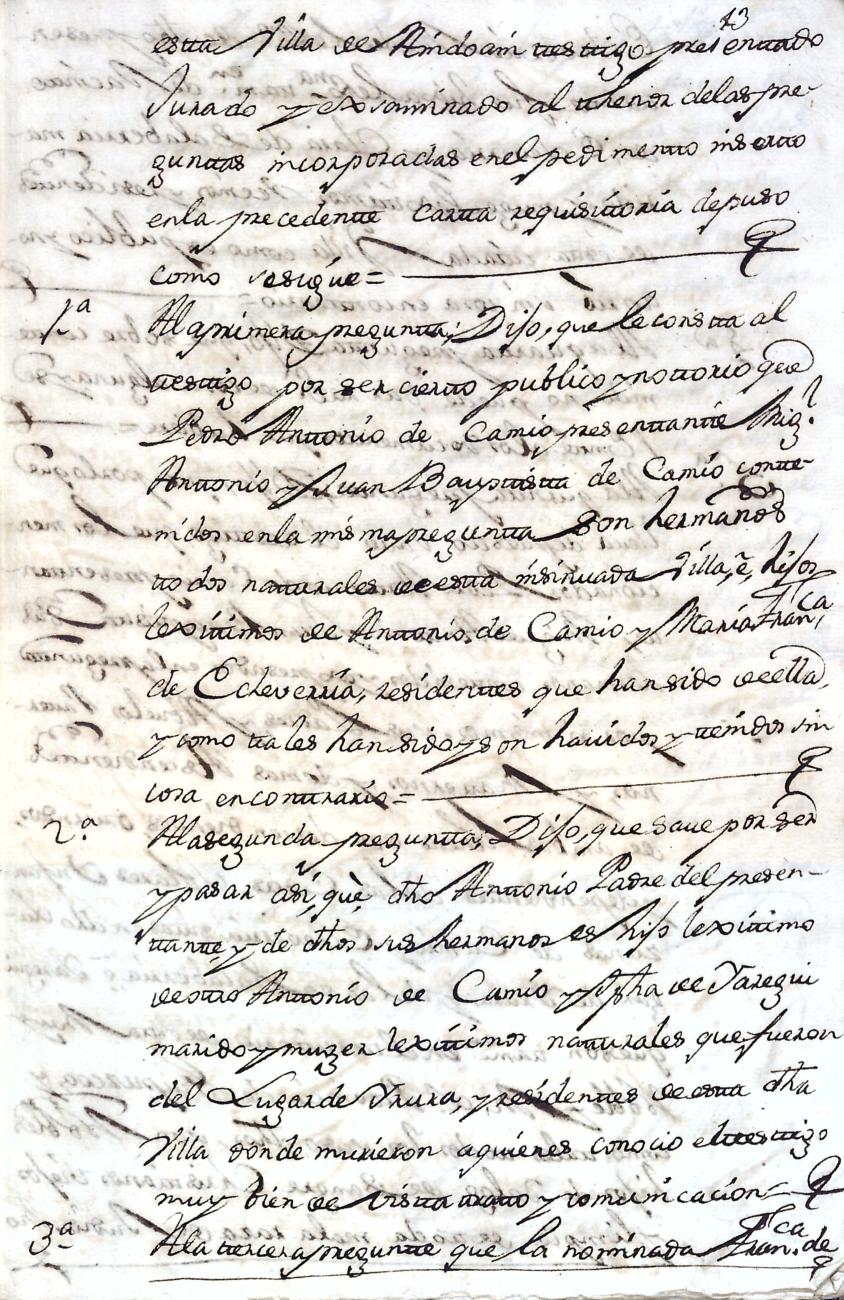 13
estta Villa de Andoain testtigo presenttado
Jurado y examinado al thenor delas pre-
gunttas incorporadas enel pedimentto insertto
enla precedentte Cartta requisittoria depuso
como sesigue =
1ª Ala primera preguntta; Dijo, que le constta al
testtigo por ser ciertto publico y nottorio que
Pedro Anttonio de Camio presenttantte Mig.l
Anttonio y Juan Bauptistta de Camio contte-
nidos enla misma preguntta son hermanos
ttodos natturales de estta insinuada Villa, è, hijos
lexittimos de Anttonio de Camio y Maria Fran.ca
de Echeverria, residenttes que han sido de ella,
y como ttales han sido y son havidos y ttenidos sin
cosa en conttrario =
2ª Ala segunda preguntta; Dijo, que save por ser
y pasar asi, què, dho Anttonio Padre del presen-
ttantte, y de dhos sus hermanos es hijo lexittimo
de ottro Anttonio de Camio y Jpha de Yaregui
marido y muger lexittimos natturales que fueron
del Lugar de Yrura, y residenttes de estta dha
Villa donde murieron a quienes conocio el testtigo
muy bien de vistta tratto y comunicacion =
3ª Ala tercera preguntte que la nominada Fran.ca de